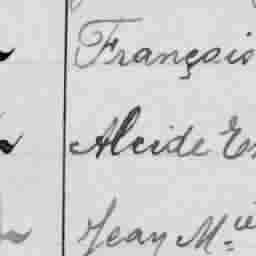 François
Alcide
Jean M.ie